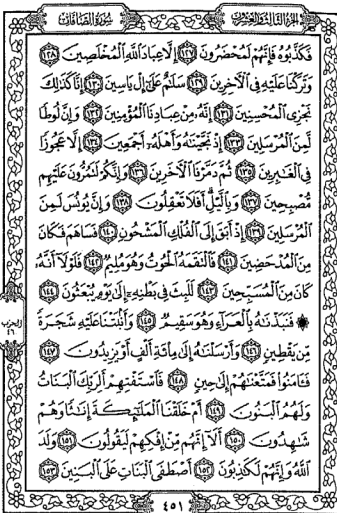 الجزء الثالث والعشرون
سورة الصافات
فَكَذَّبُوهُ فَإِنَّهُمْ لَمُحْضَرُونَ ١٢٧ إِلَّا عِبَادَ اللَّهِ الْمُخْلَصِينَ ١٢٨
وَتَرَكْنَا عَلَيْهِ فِي الْآخِرِينَ ١٢٩ سَلَامٌ عَلَىٰ إِلْ يَاسِينَ ١٣٠ إِنَّا كَذَٰلِكَ
نَجْزِي الْمُحْسِنِينَ ١٣١ إِنَّهُ مِنْ عِبَادِنَا الْمُؤْمِنِينَ ١٣٢ وَإِنَّ لُوطًا
لَّمِنَ الْمُرْسَلِينَ ١٣٣ إِذْ نَجَّيْنَاهُ وَأَهْلَهُ أَجْمَعِينَ ١٣٤ إِلَّا عَجُوزًا
فِي الْغَابِرِينَ ١٣٥ ثُمَّ دَمَّرْنَا الْآخَرِينَ ١٣٦ وَإِنَّكُمْ لَتَمُرُّونَ عَلَيْهِم
مُّصْبِحِينَ ١٣٧ وَبِاللَّيْلِ أَفَلَا تَعْقِلُونَ ١٣٨ وَإِنَّ يُونُسَ لَمِنَ
الْمُرْسَلِينَ ١٣٩ إِذْ أَبَقَ إِلَى الْفُلْكِ الْمَشْحُونِ ١٤٠ فَسَاهَمَ فَكَانَ
مِنَ الْمُدْحَضِينَ ١٤١ فَالْتَقَمَهُ الْحُوتُ وَهُوَ مُلِيمٌ ١٤٢ فَلَوْلَا أَنَّهُ
كَانَ مِنَ الْمُسَبِّحِينَ ١٤٣ لَلَبِثَ فِي بَطْنِهِ إِلَىٰ يَوْمِ يُبْعَثُونَ ١٤٤
۞ فَنَبَذْنَاهُ بِالْعَرَاءِ وَهُوَ سَقِيمٌ ١٤٥ وَأَنبَتْنَا عَلَيْهِ شَجَرَةً
مِّن يَقْطِينٍ ١٤٦ وَأَرْسَلْنَاهُ إِلَىٰ مِائَةِ أَلْفٍ أَوْ يَزِيدُونَ ١٤٧
فَآمَنُوا فَمَتَّعْنَاهُمْ إِلَىٰ حِينٍ ١٤٨ فَاسْتَفْتِهِمْ أَلِرَبِّكَ الْبَنَاتُ
وَلَهُمُ الْبَنُونَ ١٤٩ أَمْ خَلَقْنَا الْمَلَائِكَةَ إِنَاثًا وَهُمْ
شَاهِدُونَ ١٥٠ أَلَا إِنَّهُم مِّنْ إِفْكِهِمْ لَيَقُولُونَ ١٥١ وَلَدَ
اللَّهُ وَإِنَّهُمْ لَكَاذِبُونَ ١٥٢ أَصْطَفَى الْبَنَاتِ عَلَى الْبَنِينَ ١٥٣
الحزب
٤٦
٤٥١